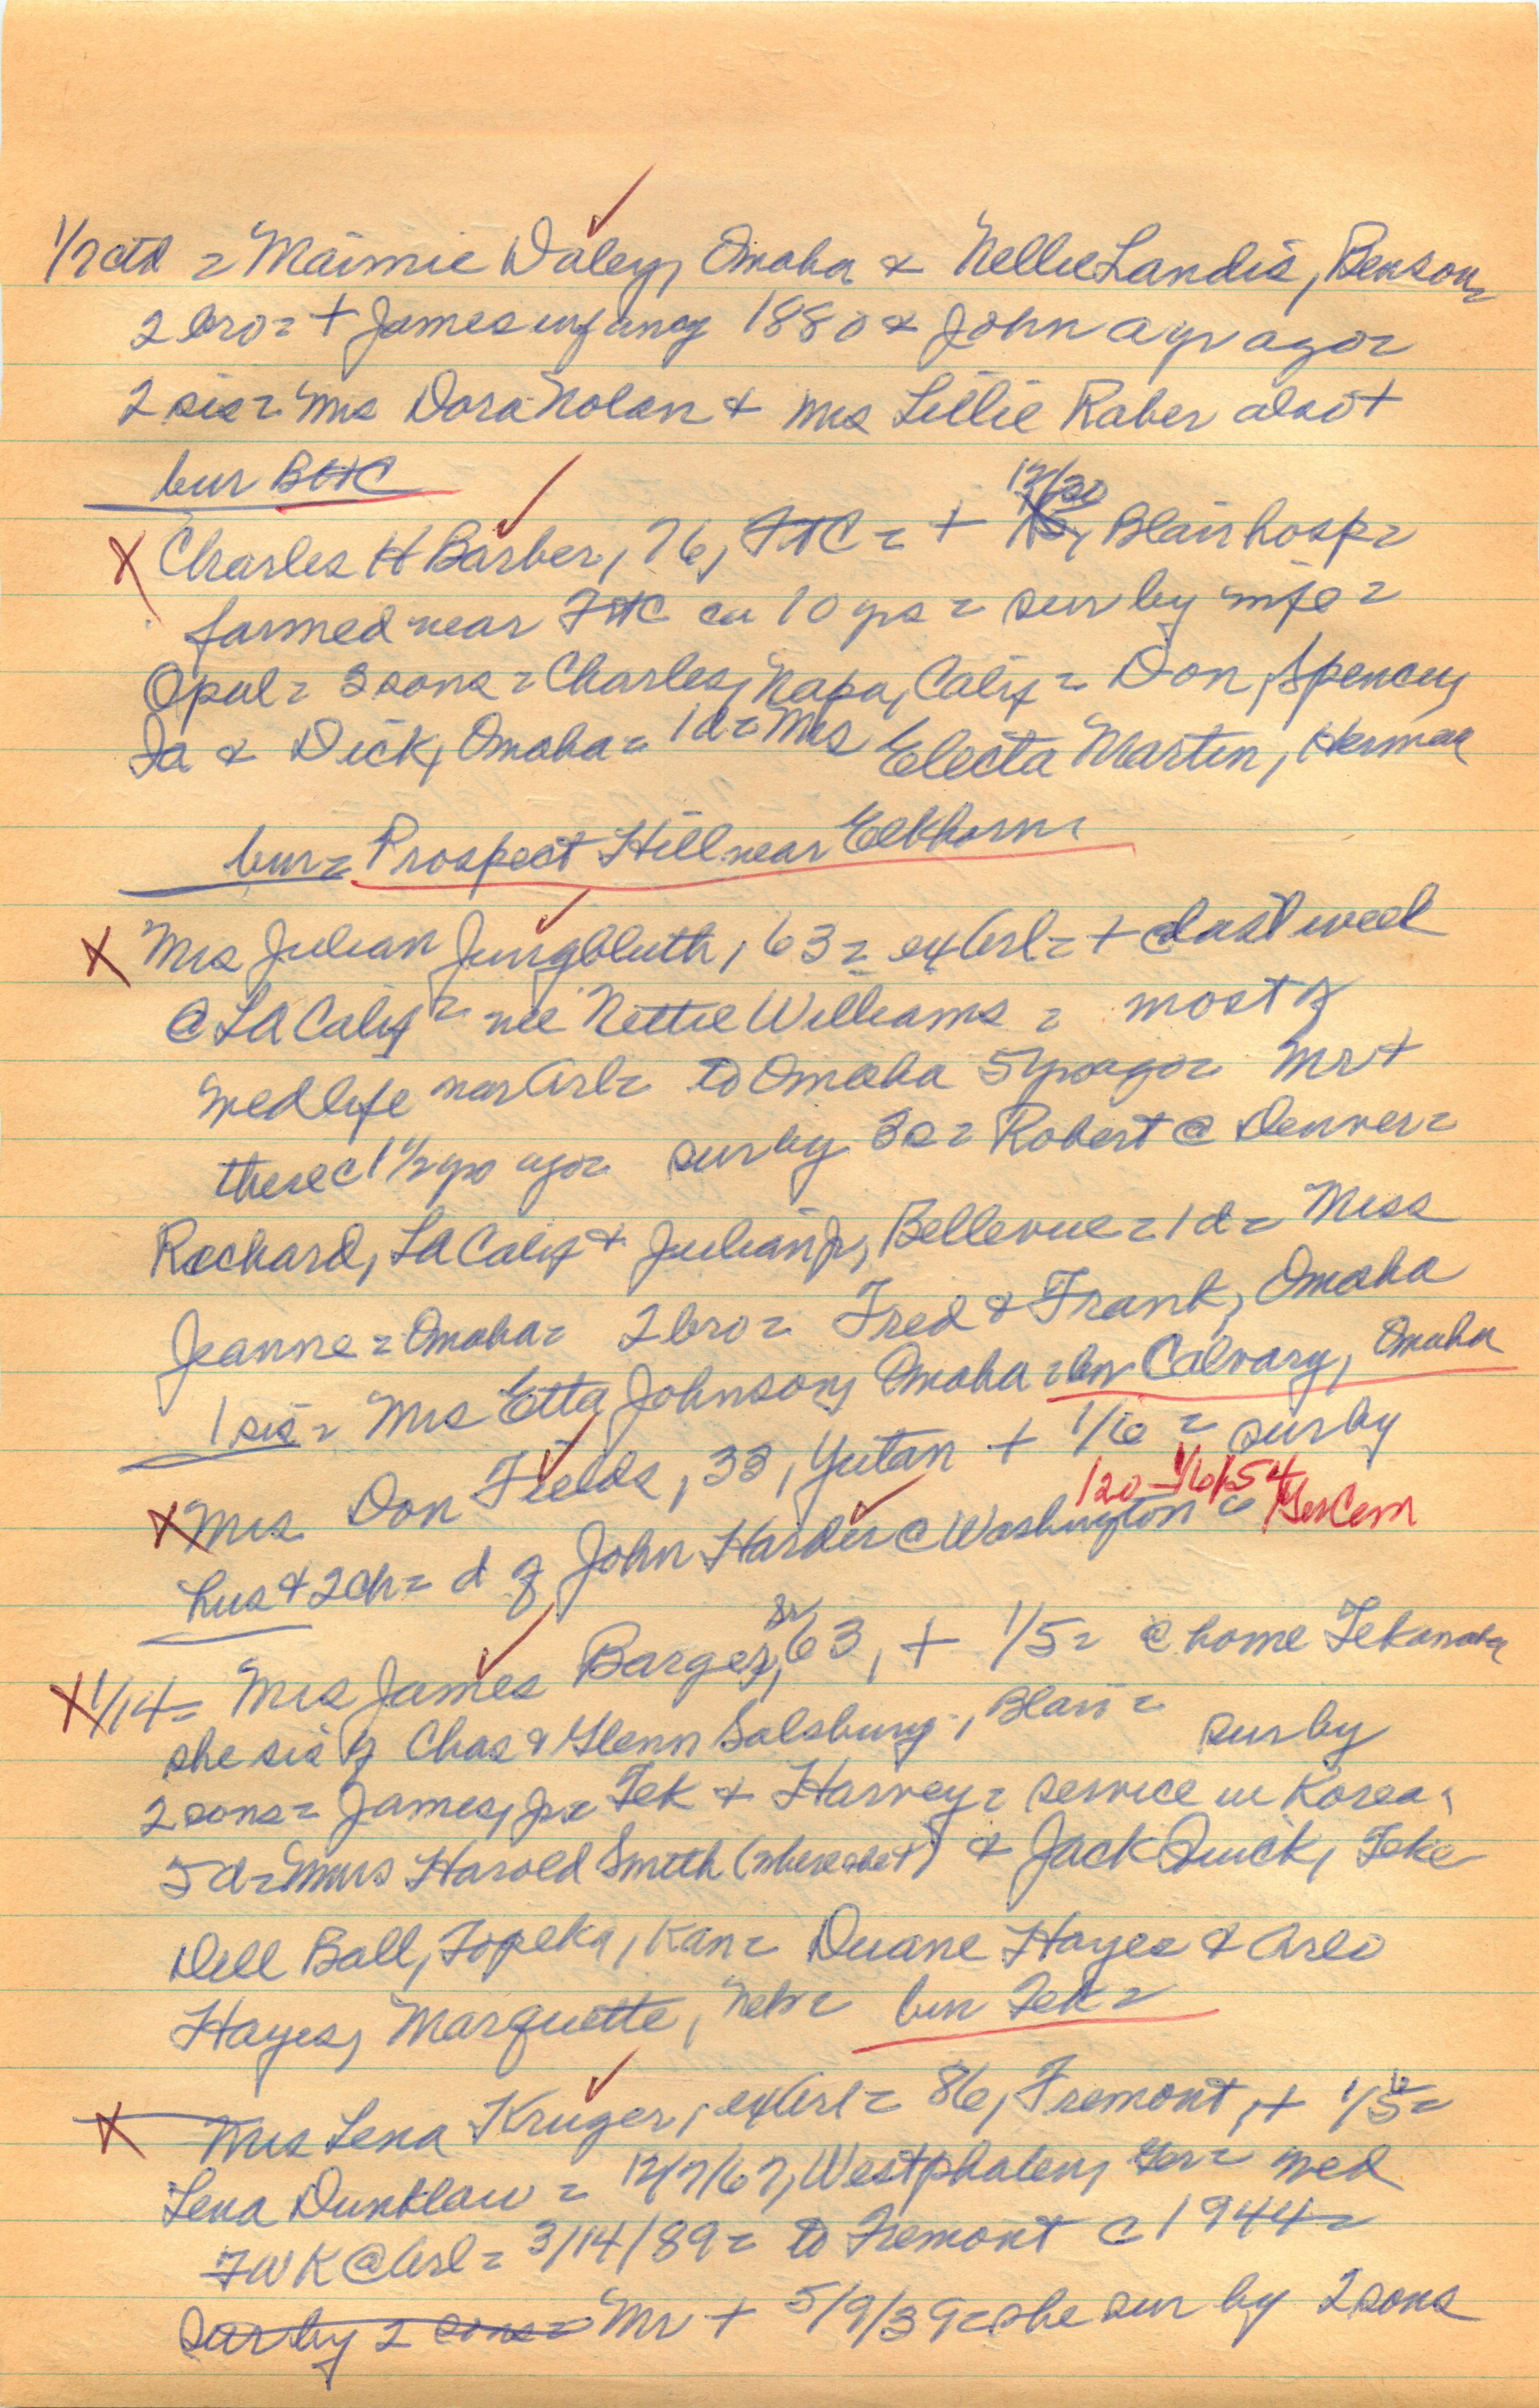 1/7 ctd = Maimie Daley, Omaha & Nellie Landis, Benson =
2 bro = + James infancy 1880 & John a yr ago =
2 sis = Mrs Dora Nolan & Mrs Lillie Raber also +
bur BHC
12/30
X Charles H Barber, 76, FtC = + Blair hosp =
farmed near FtC ca 10 yrs = sur by wife =
Opal = 3 sons = Charles, Napa, Calif = Don, Spencer,
Ia & Dick, Omaha = 1d = Mrs Electa Martin, Herman
bur = Prospect Hill near Elkhorn
X Mrs Julian Jungbluth, 63 = ex Arl = + last week
@ LA Calif = nee Nettie Williams = most of
wed life near Arl = to Omaha 5 yrs ago = Mr +
there c 1 1/2 yrs ago = sur by 3s = Robert @ Denver =
Richard, LA Calif & Julian Jr, Bellevue = 1 d = Miss
Jeanne = Omaha = 2 bro = Fred & Frank, Omaha
1 sis = Mrs Etta Johnson, Omaha = bur Calvary, Omaha
X Mrs Don Fields, 33, Yutan + 1/6 = sur by
120 - 1/6/54
hus & 2 ch = d of John Harder @ Washington = GerCem
X 1/14 = Mrs James Barger, Sr 63, + 1/5 = @ home Tekamah
she sis of Chas & Glenn Salsbury, Blair = sur by
2 sons = James, Jr = Tek & Harvey = service in Korea,
5 d = Mmes Harold Smith (where she +) & Jack Quick, Teke
Dell Ball, Topeka, Kan = Duane Hayes & Arlo
Hayes, Marquette, Neb = bur Tek =
X Mrs Lena Kruger, ex Arl = 86, Fremont, + 1/5 =
Lena Dunklau = 12/7/67, Westphalen, Ger = wed
FWK @ Arl = 3/14/89 = to Fremont c 1944 =
sur by 2 sons = Mr + 5/9/39 = she sur by 2 sons